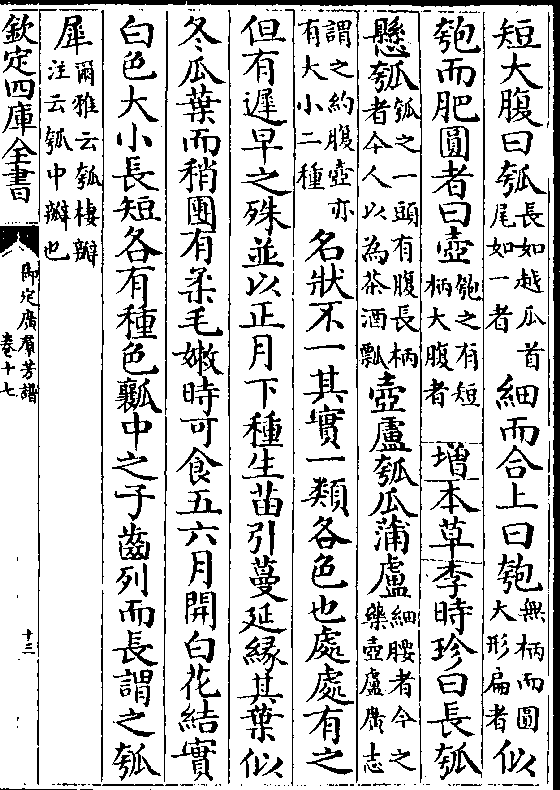 短大腹曰瓠長如越瓜首尾如一者細而合上曰匏無柄而圓大形扁者似
匏而肥圓者曰壺匏之有短柄大腹者增本草李時珍曰長瓠
懸瓠瓠之一頭有腹長柄者今人以為茶酒瓢壺盧瓠瓜蒲盧細腰者今之藥壺盧廣志
謂之約腹壺亦有大小二種名狀不一其實一類各色也處處有之
但有遲早之殊並以正月下種生苗引蔓延緣其葉似
冬瓜葉而稍團有柔毛嫩時可食五六月開白花結實
白色大小長短各有種色瓤中之子齒列而長謂之瓠
犀爾雅云瓠棲瓣注云瓠中瓣也
欽定四庫全書
御定廣羣芳譜
卷十七
十三